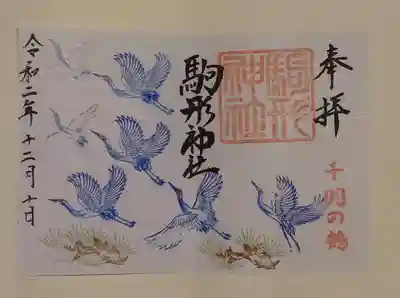 奉拝
駒形
神社
千羽の鶴
駒形神社
令和二年十二月十日